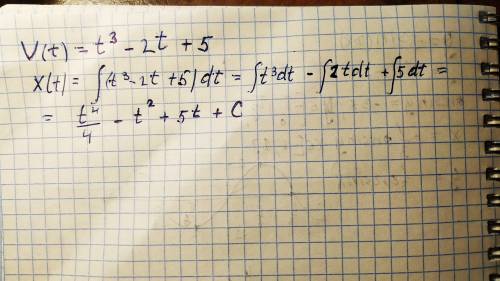 V(t) = t³ - 2t + 5
X(t) = ∫(t³ - 2t + 5)dt = ∫t³dt - ∫2tdt + ∫5dt =
= t⁴/4 - t² + 5t + C